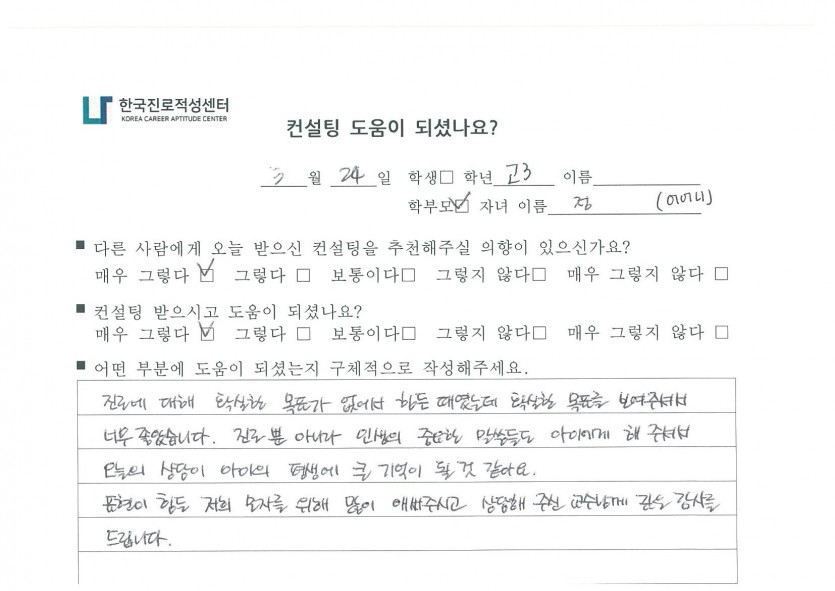 한국진로적성센터
KOREA CAREER APTITUDE CENTER
컨설팅 도움이 되셨나요?
3 월 24 일 학생□ 학년 고3 이름
학부모☑ 자녀 이름 정 (어머니)
■ 다른 사람에게 오늘 받으신 컨설팅을 추천해주실 의향이 있으신가요?
매우 그렇다 ☑ 그렇다 □ 보통이다□ 그렇지 않다□ 매우 그렇지 않다 □
■ 컨설팅 받으시고 도움이 되셨나요?
매우 그렇다 ☑ 그렇다 □ 보통이다□ 그렇지 않다□ 매우 그렇지 않다 □
■ 어떤 부분에 도움이 되셨는지 구체적으로 작성해주세요.
진로에 대해 확실한 목표가 없어서 힘든 때였는데 확실한 목표를 보여주셔서
너무 좋았습니다. 진로 뿐 아니라 인생의 중요한 말씀들도 아이에게 해 주셔서
오늘의 상담이 아이의 평생에 큰 기억이 될 것 같아요.
표현이 힘든 저희 모자를 위해 많이 애써주시고 상담해 주신 교수님께 감사를
드립니다.